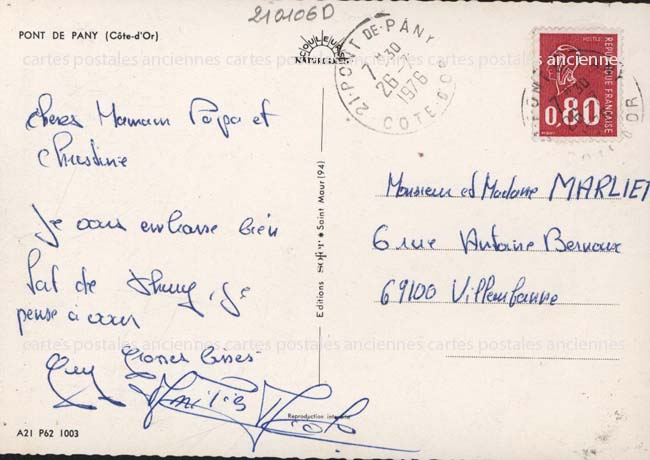 210106D
PONT DE PANY (Côte-d'Or)
COULEURS
NATURELLES
21-PONT DE-PANY
7-30
26-7
1976
COTE D'OR
POSTES
REPUBLIQUE FRANÇAISE
0,80
7-30
cartes postales anciennes cartes postales anciennes cartes postales anciennes
Cheres Maman Papa et
Christine
Je vous embrasse bien
fort de
pense à vous
Grosses bises
Monsieur et Madame MARLIET
6 rue Antoine Bernoux
69100 Villeurbanne
cartes postales anciennes cartes postales anciennes cartes postales anciennes
Editions SOFER Saint Maur (94)
Reproduction interdite
A21 P62 1003